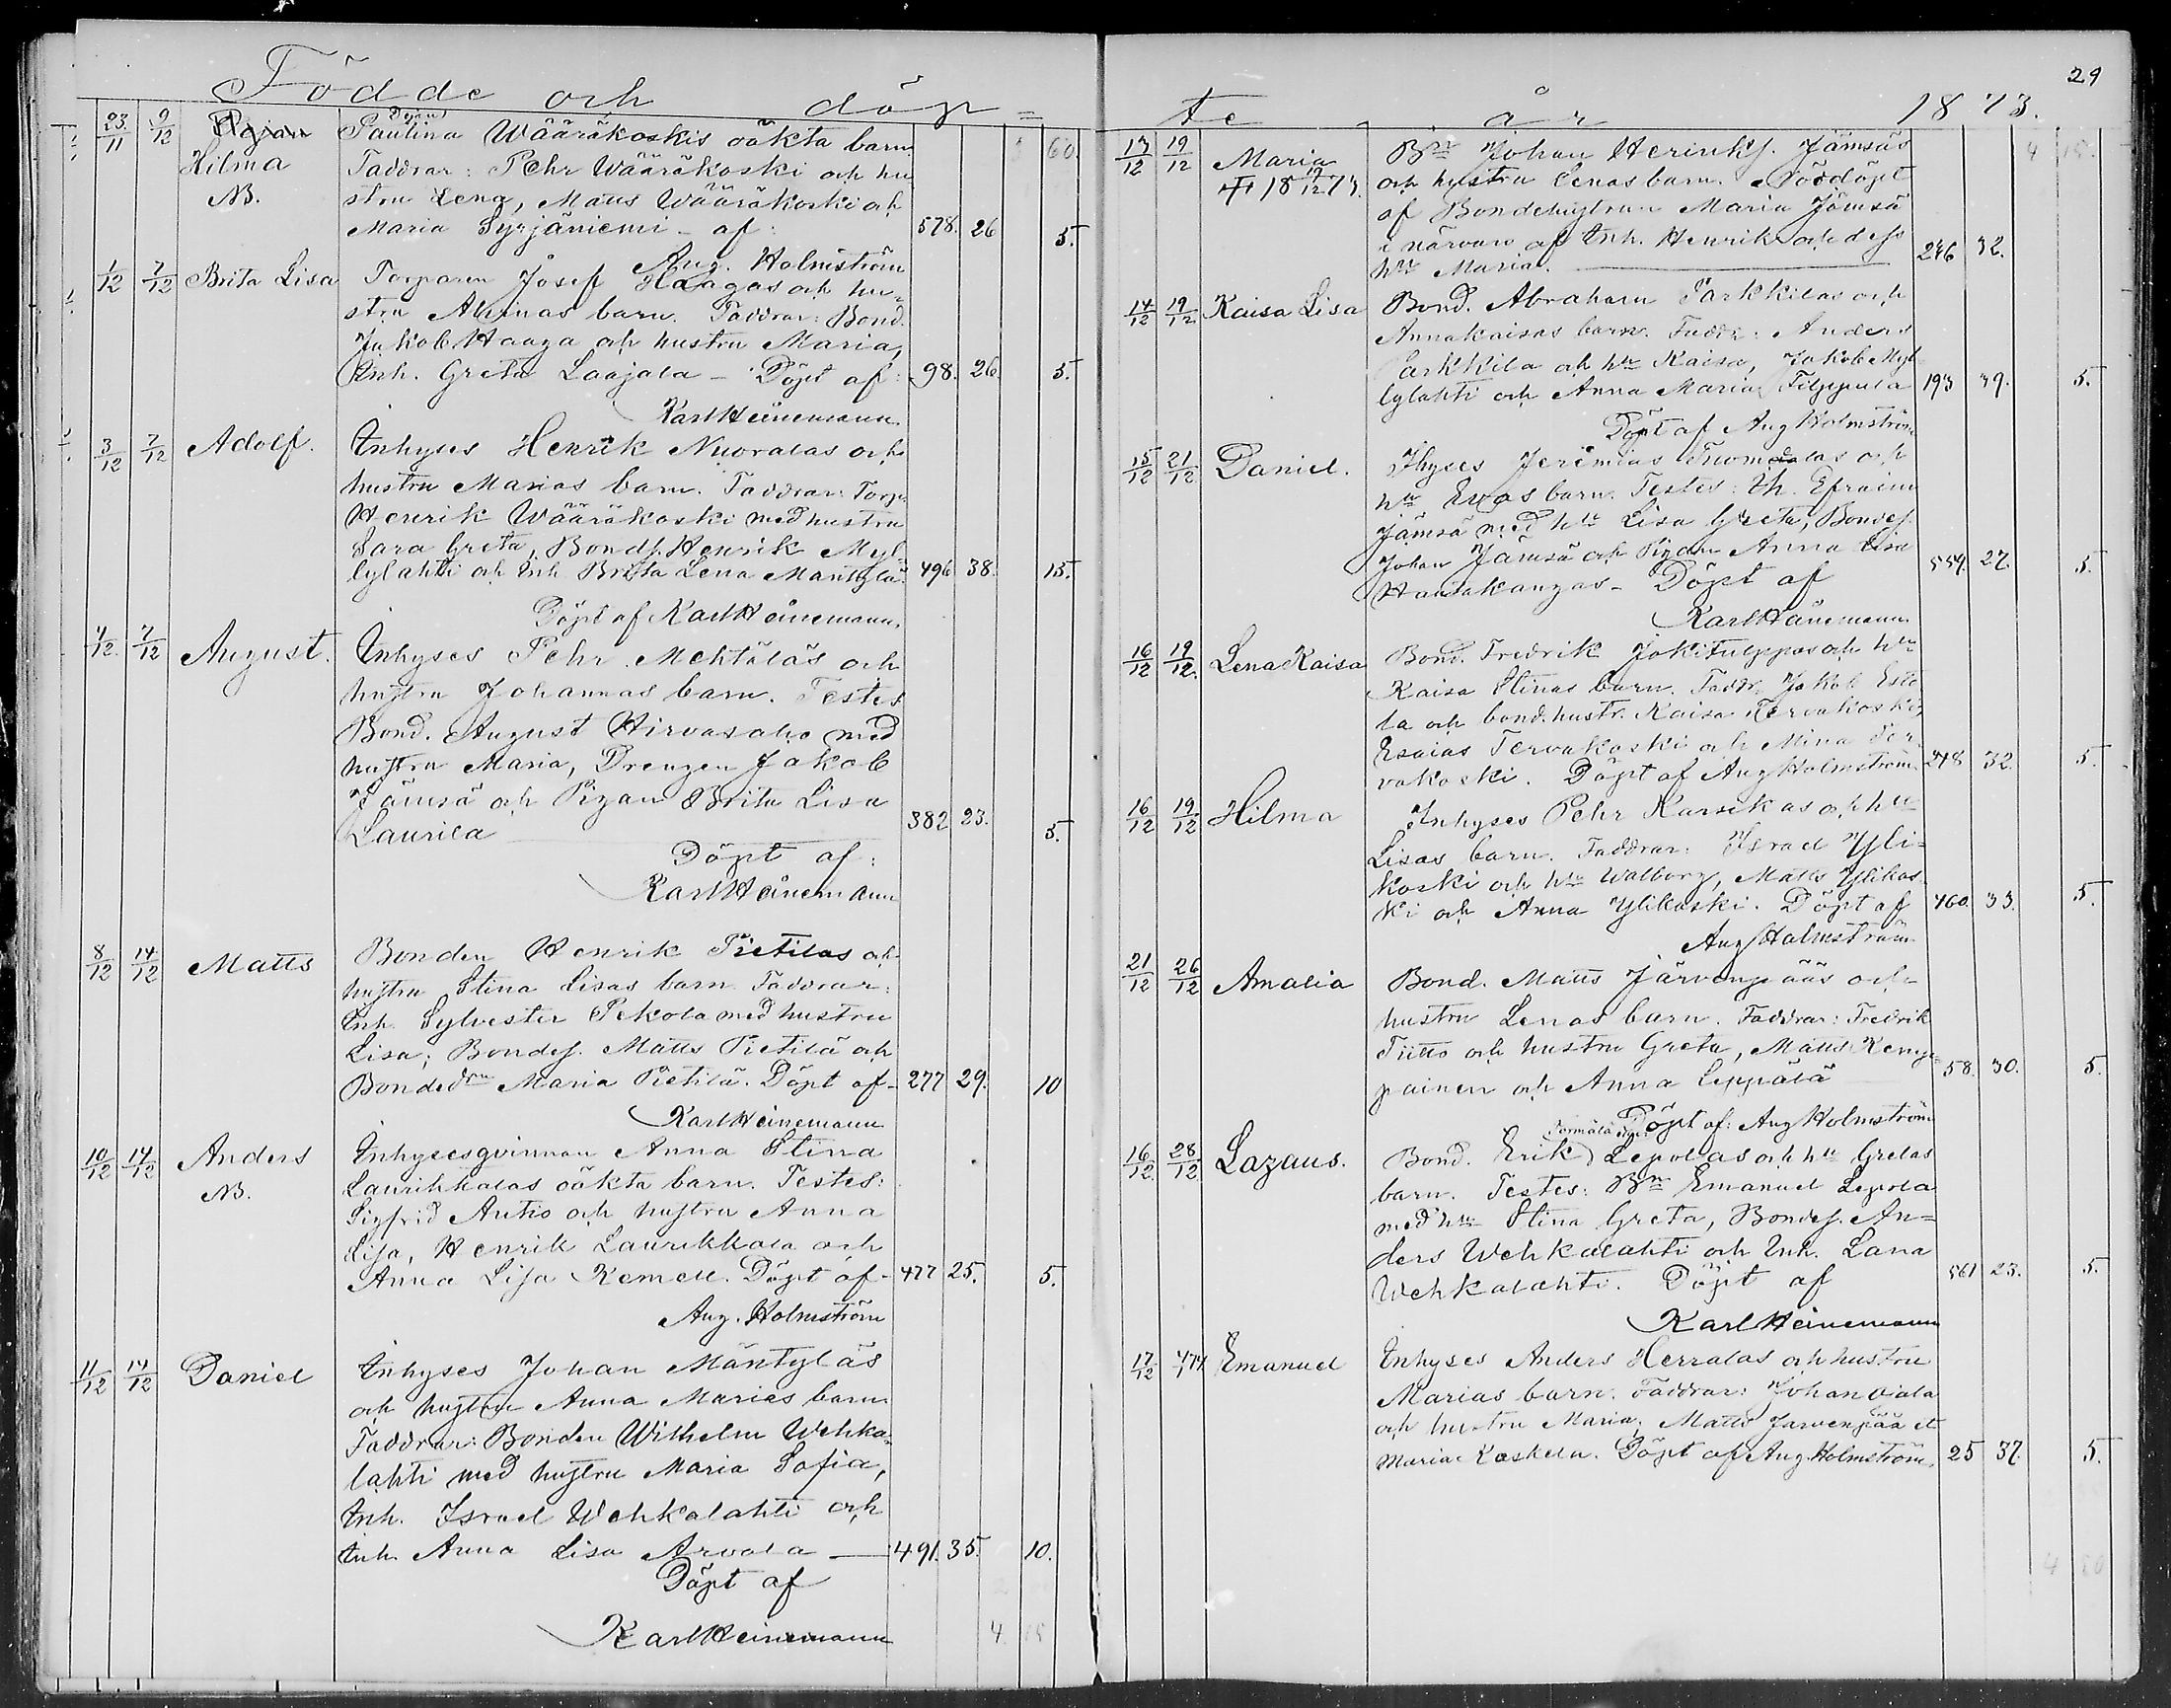 29
Födde och döp=
te år 1873.
23/11 9/12 Pigan
Hilma
NB.
Pigan
Paulina Wääräkoskis oäkta barn
Faddrar: Pehr Wääräkoski och hu
stru Lena, Matts Wääräkoski och
Maria Syrjäniemi - af: 578. 26 5.
Aug. Holmström
60.
1/12 7/12 Brita Lisa
Torparen Josef Haagas och hu-
stru Alinas barn. Faddrar: Bond.
Jakob Haaga och hustru Maria,
Inh. Greta Laajala - Döpt af: 98. 26. 5.
Karl Heinemann
3/12 7/12 Adolf.
Inhyses Henrik Nuoralas och
hustru Marias barn. Faddrar: Torp.
Henrik Wääräkoski med hustru
Sara Greta, Bonds. Henrik Myl-
lylahti och Inh. Brita Lena Mäntylä. 496 38. 15.
Döpt af Karl Heinemann.
4/12. 7/12 August.
Inhyses Pehr Mehtäläs och
hustru Johannas barn. Testes
Bond. August Hirvasaho med
hustru Maria, Drengen Jakob
Jämsä och Pigan Brita Lisa
Laurila 382 23. 5.
Döpt af:
Karl Heinemann
8/12 14/12 Matts
Bonden Henrik Pietilas och
hustru Stina Lisas barn Faddrar:
Inh. Sylvester Pekola med hustru
Lisa; Bondes. Matts Pietilä och
Bondedrn Maria Pietilä. Döpt af- 277 29. 10
Karl Heinemann
10/12 14/12 Anders
NB.
Inhysesqvinnan Anna Stina
Laurikkalas oäkta barn. Testes:
Sigfrid Autio och hustru Anna
Lisa, Henrik Laurikkala och
Anna Lisa Kemell. Döpt af- 477 25. 5.
Aug. Holmström
11/12 14/12 Daniel
Inhyses Johan Mäntyläs
och hustru Anna Marias barn
Faddrar: Bonden Wilhelm Wehka-
lahti med hustru Maria Sofia,
Inh. Israel Wehkalahti och
Inh. Anna Lisa Arvola 491. 35. 10.
Döpt af
Karl Heinemann
4 15
13/12 19/12 Maria
† 18 19/12 73.
Bn Johan Henriks. Jämsäs
och hustru Lenas barn. Nöddöpt
af Bondehustrun Maria Jämsä
i närvaro af Inh. Henrik och dess
hu Maria. 246 32.
4 15.
14/12 19/12 Kaisa Lisa
Bond. Abraham Parkkilas och
Annakaisas barn. Faddr: Anders
Parkkila och hu Kaisa, Jakob Myl-
lylahti och Anna Maria Filppula 193 39. 5.
Döpt af Aug Holmström
15/12 21/12 Daniel.
Ihyses Jeremias Tuomalas och
hu Evas barn. Testes: Ih. Efraim
Jämsä med hu Lisa Greta, Bondes.
Johan Jämsä och Pigan Anna Lisa 559. 27. 5.
Hautakangas - Döpt af
Karl Heinemann
16/12 19/12. Lena Kaisa
Bond. Fredrik Jokitulppos och hu
Kaisa Stinas barn. Faddr. Jakob Esko
la och bond.hustr. Kaisa Tervakoski,
Esaias Tervakoski och Mina Ter
vakoski. Döpt af Aug Holmström 248 32. 5.
16/12 19/12 Hilma
Inhyses Pehr Karsikas och hu
Lisas barn. Faddrar: Israel Yli-
koski och hu Walborg, Matts Ylikos-
ki och Anna Ylikoski. Döpt af 460. 33. 5.
Aug Holmström
21/12 26/12 Amalia
Bond. Matts Järvenpääs och
hustru Lenas barn. Faddrar: Fredrik
Tiitto och hustru Greta, Matts Kemp-
painen och Anna Leppälä 58. 30. 5.
Döpt af: Aug Holmström
16/12. 28/12 Lazarus.
Bond. Erik Lepolas och hu Gretas
barn. Testes: Bn Emanuel Lepola
med hu Stina Greta, Bondes. An=
ders Wehkalahti och Inh. Lana
Wehkalahti. Döpt af 561 23. 5.
Karl Heinemann
17/12 4/1 74 Emanuel
Inhyses Anders Herralas och hustru
Marias barn. Faddrar: Johan Ojala
och hustru Maria, Matts Järvenpää et
Maria Koskela. Döpt af Aug. Holmström. 25 37. 5.